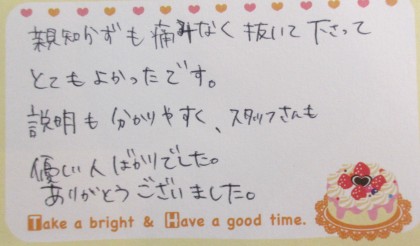 親知らずも痛みなく抜いて下さって
とてもよかったです。
説明も分かりやすく、スタッフさんも
優しい人ばかりでした。
ありがとうございました。
Take a bright & Have a good time.